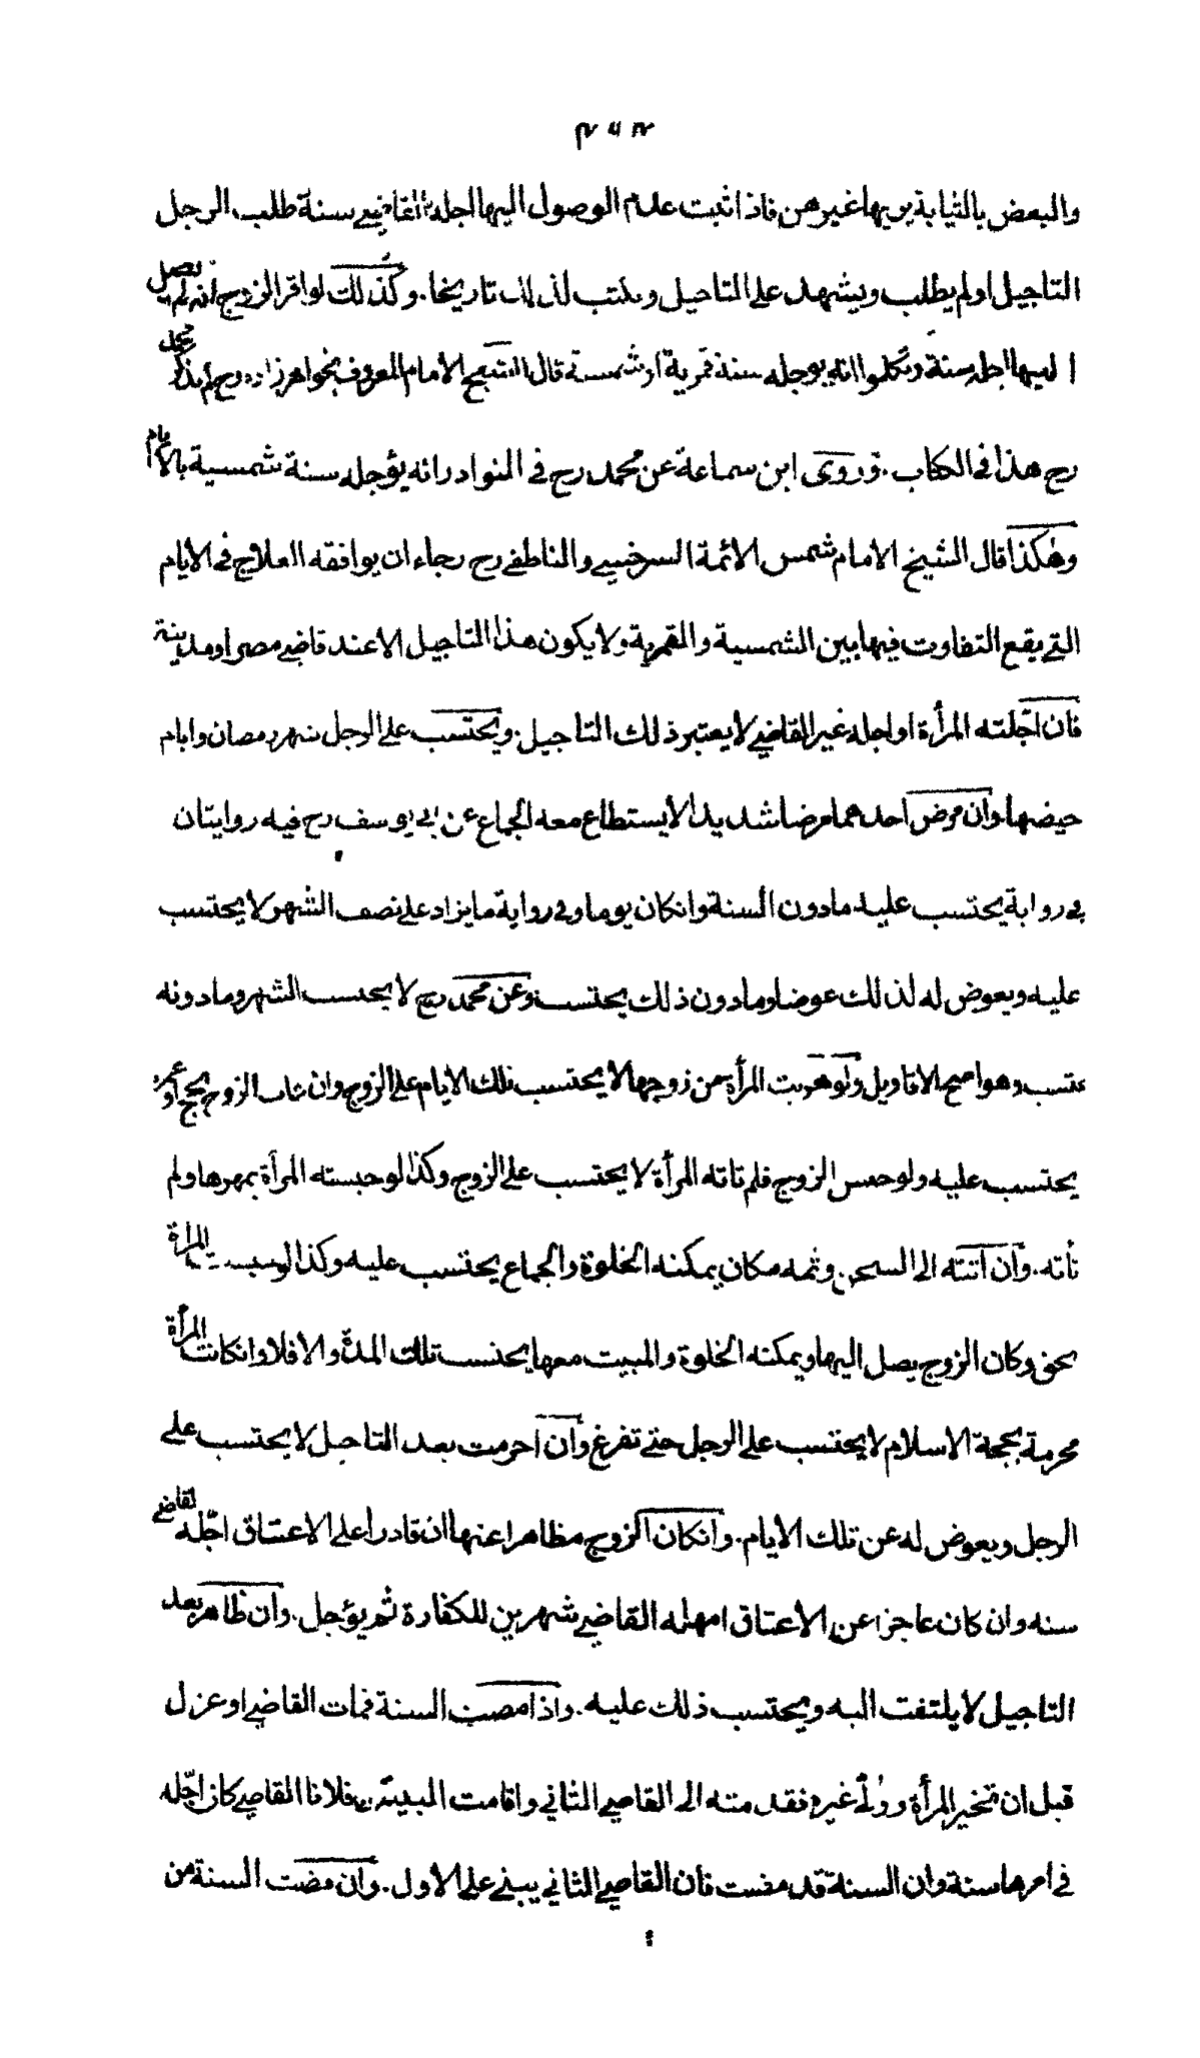 والبعض بالثيابة يريها غيرهن فاذا ثبت عدم الوصول اليها اجله القاضي سنة طلب الرجل
التاجيل او لم يطلب ويشهد على التاجيل ويكتب لذلك تاريخا. وكذلك لو اقر الزوج انه لم يصل
اليها اجله سنة وتكلموا انه يوجله سنة قمرية او شمسية قال الشيخ الامام المعروف بخواهرزاده رح لم يذكر محمد
رح هذا في الكتاب. وروى ابن سماعة عن محمد رح في النوادر انه يؤجله سنة شمسية بالايام
وهكذا قال الشيخ الامام شمس الائمة السرخسي والناطفي رح رجاء ان يوافقه العلاج في الايام
التي يقع التفاوت فيها بين الشمسية والقمرية ولا يكون هذا التاجيل الا عند قاضي مصر او مدينة
فان اجّلته المرأة او اجله غير القاضي لا يعتبر ذلك التاجيل. ويحتسب على الرجل شهر رمضان وايام
حيضها وان مرض احدهما مرضا شديدا لا يستطاع معه الجماع عن ابي يوسف رح فيه روايتان
في رواية يحتسب عليه مادون السنة وانكان يوما وفي رواية ما يزاد على نصف الشهر لا يحتسب
عليه ويعوض له لذلك عوضا ومادون ذلك يحتسب وعن محمد رح لا يحتسب الشهر ومادونه
يحتسب وهو اصح الاقاويل ولو هربت المرأة من زوجها لا يحتسب تلك الايام على الزوج وان غاب الزوج بحج او عمرة
يحتسب عليه ولو حبس الزوج فلم تاته المرأة لا يحتسب على الزوج وكذا لو حبسته المرأة بمهرها ولم
تأته. وان اتته الى السجن وثمه مكان يمكنه الخلوة والجماع يحتسب عليه وكذا لو حبست المرأة
بحق وكان الزوج يصل اليها ويمكنه الخلوة والمبيت معها يحتسب تلك المدة والا فلا وانكانت المرأة
محرمة بحجة الاسلام لا يحتسب على الرجل حتى تفرغ وان احرمت بعد التاجيل لا يحتسب على
الرجل ويعوض له عن تلك الايام. وانكان الزوج مظاهرا عنها ان قادرا على الاعتاق اجّله القاضي
سنه وان كان عاجزا عن الاعتاق امهله القاضي شهرين للكفارة ثم يؤجل. وان ظاهر بعد
التاجيل لا يلتفت اليه ويحتسب ذلك عليه. واذا مضت السنة فمات القاضي او عزل
قبل ان تخير المرأة وولّي غيره فقدمته الى القاضي الثاني واقامت البينة ان فلانا القاضي كان اجّله
في امرها سنة وان السنة قد مضت فان القاضي الثاني يبني على الاول. وان مضت السنة من